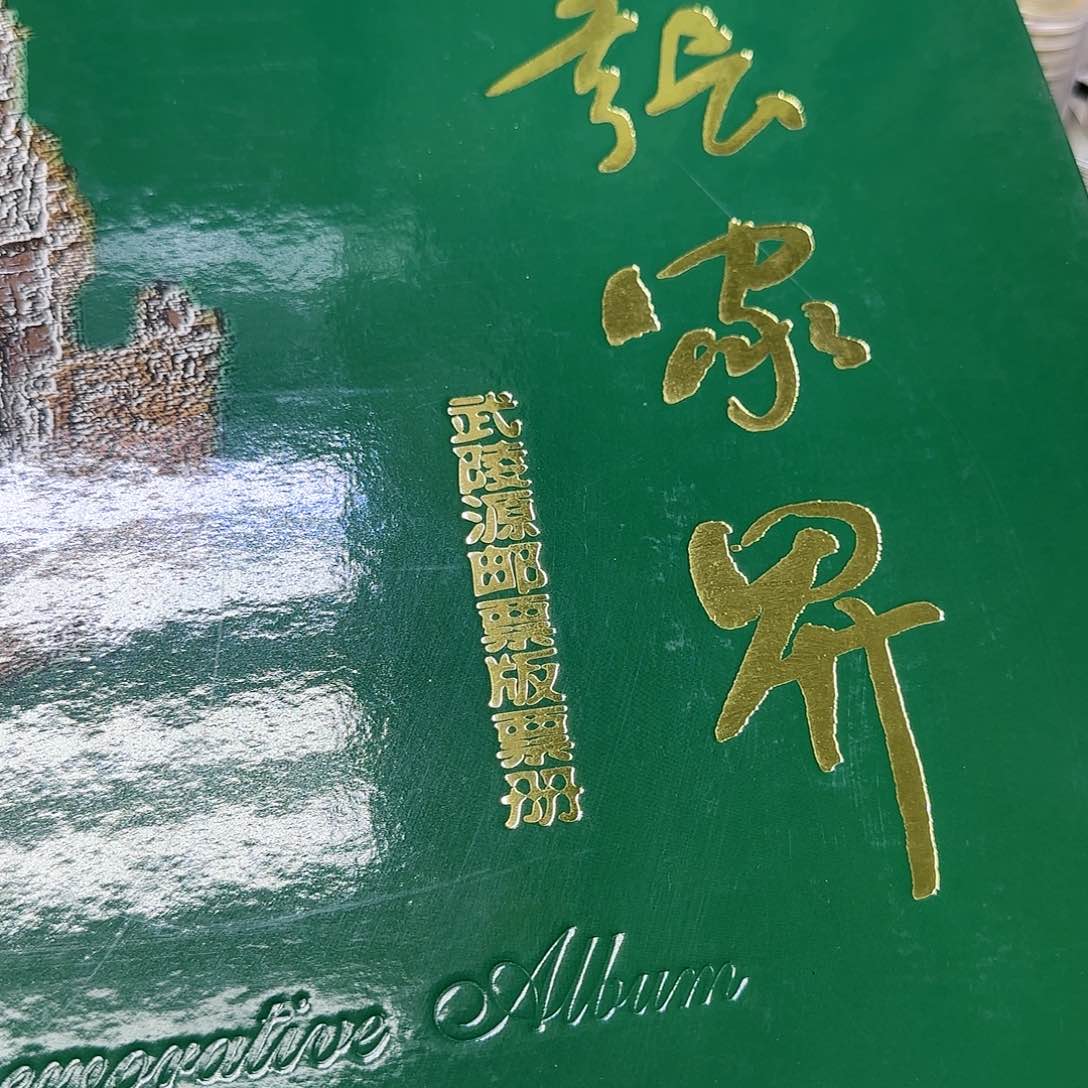 張家界
武陵源邮票版票册
emorative Album